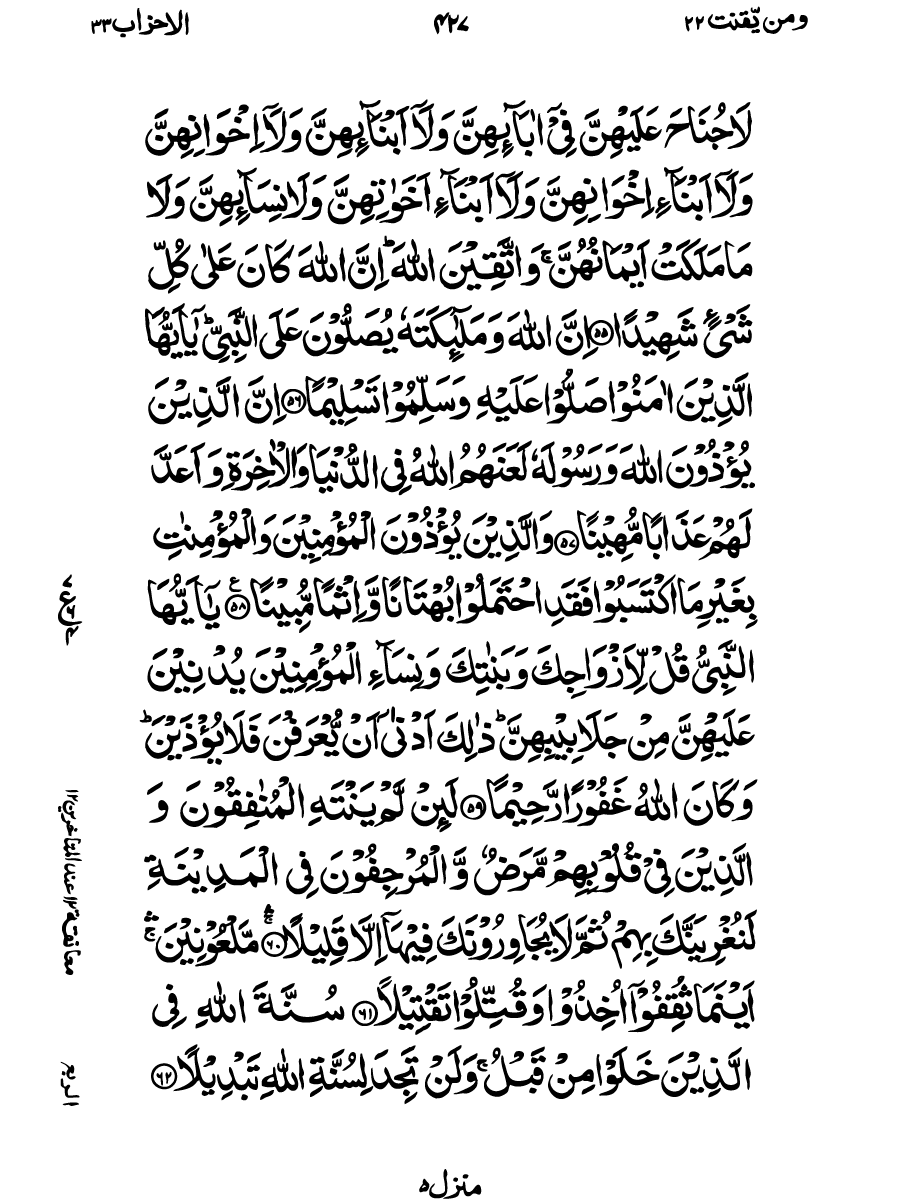 ومن يّقنت ٢٢
٤٢٧
الاحزاب ٣٣
لَا جُنَاحَ عَلَيْهِنَّ فِيْۤ اٰبَآئِهِنَّ وَلَاۤ اَبْنَآئِهِنَّ وَلَاۤ اِخْوَانِهِنَّ
وَلَاۤ اَبْنَآءِ اِخْوَانِهِنَّ وَلَاۤ اَبْنَآءِ اَخَوٰتِهِنَّ وَلَا نِسَآئِهِنَّ وَلَا
مَا مَلَكَتْ اَيْمَانُهُنَّ ۚ وَاتَّقِيْنَ اللهَ ؕ اِنَّ اللهَ كَانَ عَلٰى كُلِّ
شَيْءٍ شَهِيْدًا ۝٥٥ اِنَّ اللهَ وَمَلٰٓئِكَتَهٗ يُصَلُّوْنَ عَلَى النَّبِيِّ ؕ يٰۤاَيُّهَا
الَّذِيْنَ اٰمَنُوْا صَلُّوْا عَلَيْهِ وَسَلِّمُوْا تَسْلِيْمًا ۝٥٦ اِنَّ الَّذِيْنَ
يُؤْذُوْنَ اللهَ وَرَسُوْلَهٗ لَعَنَهُمُ اللهُ فِي الدُّنْيَا وَالْاٰخِرَةِ وَاَعَدَّ
لَهُمْ عَذَابًا مُّهِيْنًا ۝٥٧ وَالَّذِيْنَ يُؤْذُوْنَ الْمُؤْمِنِيْنَ وَالْمُؤْمِنٰتِ
بِغَيْرِ مَا اكْتَسَبُوْا فَقَدِ احْتَمَلُوْا بُهْتَانًا وَّاِثْمًا مُّبِيْنًا ۝٥٨ يٰۤاَيُّهَا
النَّبِيُّ قُلْ لِّاَزْوَاجِكَ وَبَنٰتِكَ وَنِسَآءِ الْمُؤْمِنِيْنَ يُدْنِيْنَ
عَلَيْهِنَّ مِنْ جَلَابِيْبِهِنَّ ؕ ذٰلِكَ اَدْنٰۤى اَنْ يُّعْرَفْنَ فَلَا يُؤْذَيْنَ ؕ
وَكَانَ اللهُ غَفُوْرًا رَّحِيْمًا ۝٥٩ لَئِنْ لَّمْ يَنْتَهِ الْمُنٰفِقُوْنَ وَ
الَّذِيْنَ فِيْ قُلُوْبِهِمْ مَّرَضٌ وَّالْمُرْجِفُوْنَ فِي الْمَدِيْنَةِ
لَنُغْرِيَنَّكَ بِهِمْ ثُمَّ لَا يُجَاوِرُوْنَكَ فِيْهَاۤ اِلَّا قَلِيْلًا ۛۚ ۝٦٠ مَّلْعُوْنِيْنَ ۛۚ
اَيْنَمَا ثُقِفُوْۤا اُخِذُوْا وَقُتِّلُوْا تَقْتِيْلًا ۝٦١ سُنَّةَ اللهِ فِي
الَّذِيْنَ خَلَوْا مِنْ قَبْلُ ۚ وَلَنْ تَجِدَ لِسُنَّةِ اللهِ تَبْدِيْلًا ۝٦٢
معانقة ١٢ عند المتاخرين ١٢
الربع
منزل ٥